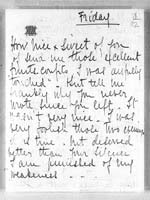 Friday
How nice & sweet of you
to send me those excellent
fruits confits, I was awfully
touched. But tell me
frankly why you never
wrote since you left. It
wasn't very nice. I was
very foolish those two evenings
it is true, but deserved
better than your silence
I am punished of my
weakness